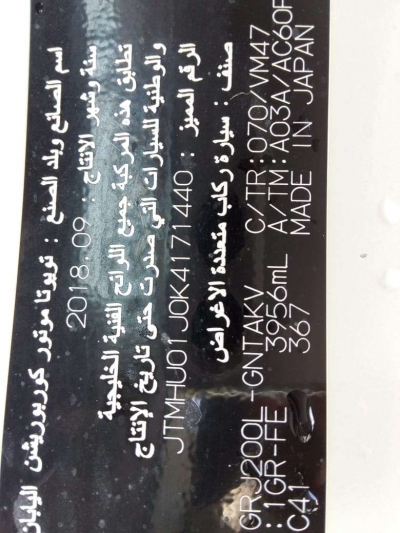 اسم الصانع وبلد الصنع : تويوتا موتور كوربوريشن اليابان
سنة وشهر الإنتاج : 2018.09
تطابق هذه المركبة جميع اللوائح الفنية الخليجية
والوطنية للسيارات التي صدرت حتى تاريخ الإنتاج
الرقم المميز : JTMHU01J0K4171440
صنف : سيارة ركاب متعددة الاغراض
GRJ200L-GNTAKV C/TR:070/VM47
:1GR-FE 3956mL A/TM:A03A/AC60F
C41 367 MADE IN JAPAN